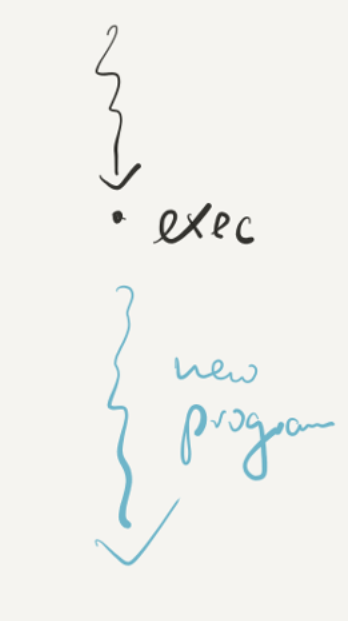 exec
new
program